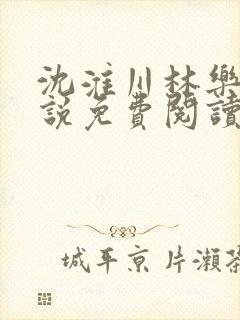 沈淮川林樂
說免費閱讀
城平京片瀨